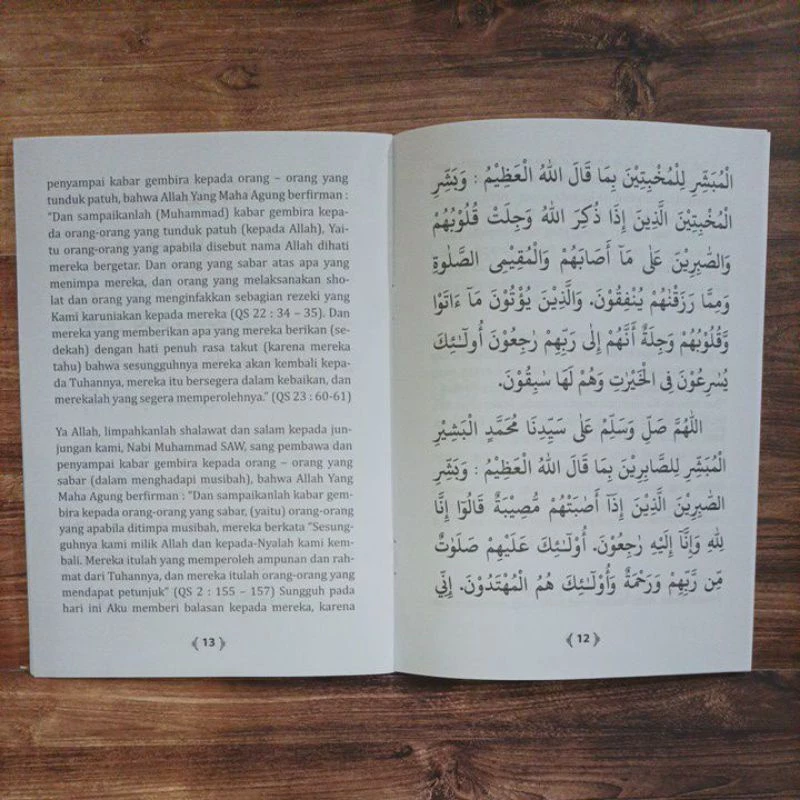 الْمُبَشِّرِ لِلْمُخْبِتِيْنَ بِمَا قَالَ اللهُ الْعَظِيْمُ : وَبَشِّرِ
الْمُخْبِتِيْنَ الَّذِيْنَ إِذَا ذُكِرَ اللهُ وَجِلَتْ قُلُوْبُهُمْ
وَالصّٰبِرِيْنَ عَلٰى مَآ أَصَابَهُمْ وَالْمُقِيْمِى الصَّلٰوةِ
وَمِمَّا رَزَقْنٰهُمْ يُنْفِقُوْنَ. وَالَّذِيْنَ يُؤْتُوْنَ مَآ ءَاتَوْا
وَّقُلُوْبُهُمْ وَجِلَةٌ أَنَّهُمْ إِلٰى رَبِّهِمْ رٰجِعُوْنَ أُولٰٓئِكَ
يُسٰرِعُوْنَ فِى الْخَيْرٰتِ وَهُمْ لَهَا سٰبِقُوْنَ.
اَللّٰهُمَّ صَلِّ وَسَلِّمْ عَلٰى سَيِّدِنَا مُحَمَّدٍ الْبَشِيْرِ
الْمُبَشِّرِ لِلصَّابِرِيْنَ بِمَا قَالَ اللهُ الْعَظِيْمُ : وَبَشِّرِ
الصّٰبِرِيْنَ الَّذِيْنَ إِذَآ أَصٰبَتْهُمْ مُّصِيْبَةٌ قَالُوْٓا إِنَّا
لِلّٰهِ وَإِنَّآ إِلَيْهِ رٰجِعُوْنَ. أُولٰٓئِكَ عَلَيْهِمْ صَلَوٰتٌ
مِّن رَّبِّهِمْ وَرَحْمَةٌ وَأُولٰٓئِكَ هُمُ الْمُهْتَدُوْنَ. إِنِّي
12
penyampai kabar gembira kepada orang – orang yang
tunduk patuh, bahwa Allah Yang Maha Agung berfirman :
"Dan sampaikanlah (Muhammad) kabar gembira kepa-
da orang-orang yang tunduk patuh (kepada Allah), Yai-
tu orang-orang yang apabila disebut nama Allah dihati
mereka bergetar. Dan orang yang sabar atas apa yang
menimpa mereka, dan orang yang melaksanakan sho-
lat dan orang yang menginfakkan sebagian rezeki yang
Kami karuniakan kepada mereka (QS 22 : 34 – 35). Dan
mereka yang memberikan apa yang mereka berikan (se-
dekah) dengan hati penuh rasa takut (karena mereka
tahu) bahwa sesungguhnya mereka akan kembali kepa-
da Tuhannya, mereka itu bersegera dalam kebaikan, dan
merekalah yang segera memperolehnya." (QS 23 : 60-61)
Ya Allah, limpahkanlah shalawat dan salam kepada jun-
jungan kami, Nabi Muhammad SAW, sang pembawa dan
penyampai kabar gembira kepada orang – orang yang
sabar (dalam menghadapi musibah), bahwa Allah Yang
Maha Agung berfirman : "Dan sampaikanlah kabar gem-
bira kepada orang-orang yang sabar, (yaitu) orang-orang
yang apabila ditimpa musibah, mereka berkata "Sesung-
guhnya kami milik Allah dan kepada-Nyalah kami kem-
bali. Mereka itulah yang memperoleh ampunan dan rah-
mat dari Tuhannya, dan mereka itulah orang-orang yang
mendapat petunjuk" (QS 2 : 155 – 157) Sungguh pada
hari ini Aku memberi balasan kepada mereka, karena
13